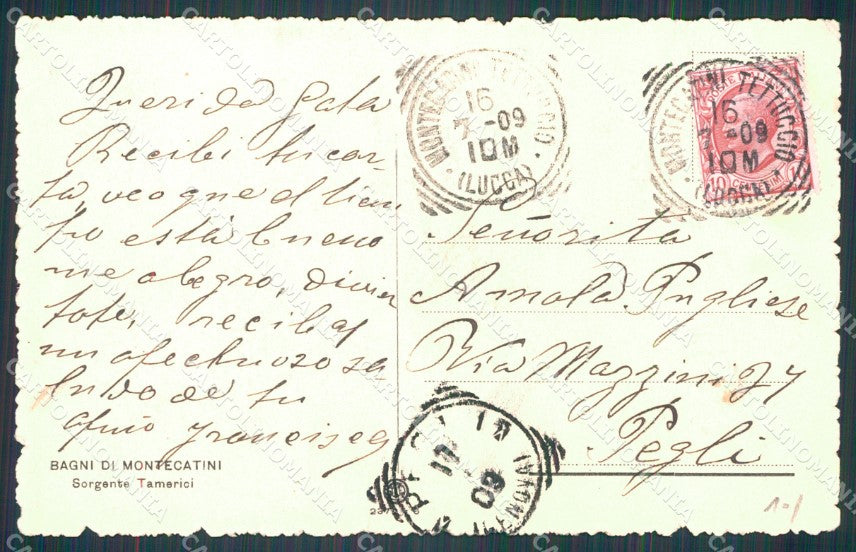 Querida Gata
Recibi tu car-
ta, veo que el tiem
po está bueno
me alegro, divier
tete, recibas
un afectuoso sa-
ludo de tu
afmo Francisco
BAGNI DI MONTECATINI
Sorgente Tamerici
MONTECATINI TETTUCCIO
16
7 -09
10M
(LUCCA)
MONTECATINI TETTUCCIO
16
7 -09
10M
(LUCCA)
10
Señorita
Amalda Pugliese
Via Mazzini 27
Pegli
CARTOLINOMANIA